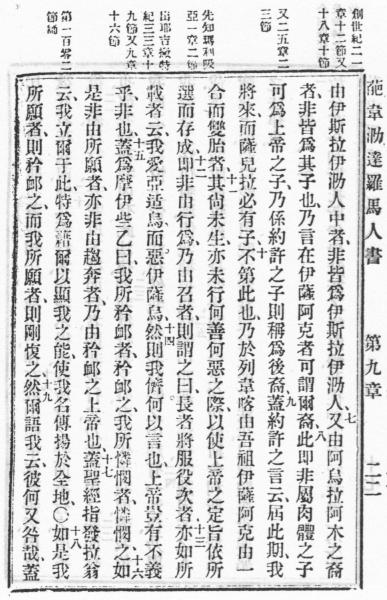 葩韋泐達羅馬人書 第九章 二二
創世紀二一
章十二節又
十八章十節
又二五章二
三節
先知瑪利吸
亞一章二節
出耶吉撥特
紀三三章十
九節又九章
十六節
第一百零二
節
由伊斯拉伊泐人中者、非皆爲伊斯拉伊泐人、七又由阿烏拉阿木之裔
者、非皆爲其子也、乃言在伊薩阿克者、可謂爾裔、八此即非屬肉體之子
可爲上帝之子、乃係約許之子則稱爲後裔、九蓋約許之言云、屆此期我
將來、而薩兒拉必有子、十不第此也、乃於列韋喀由吾祖伊薩阿克由一
合而雙胎者、十一其尚未生亦未行何善何惡之際、以使上帝之定旨依所
選而存成、即非由行爲、乃由召者、十二則謂之曰、長者將服役次者、十三亦如所
載者云、我愛亞适烏而惡伊薩烏、十四然則我儕何以言也、上帝豈有不義
乎、非也、十五蓋爲摩伊些乙曰、我所矜卹者矜卹之、我所憐憫者憐憫之、十六如
是非由所願者、亦非由趨奔者、乃由矜卹之上帝也、十七蓋聖經指發拉翁
云、我立爾于此、特爲藉爾以顯我之能、使我名傳揚於全地、〇十八如是我
所願者則矜卹之、而我所願者則剛愎之、十九然爾語我云、彼何又咎哉、蓋